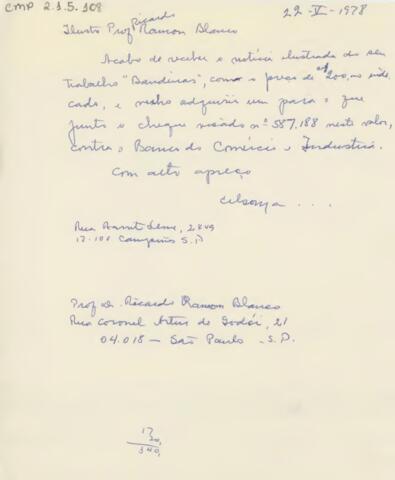 CMP 2.1.5.108
22-V-1978
Ricardo
Ilustre Prof Ramon Blanco
Acabo de receber a notícia ilustrada do seu
trabalho "Bandeiras", com o preço de 200,
cado, e venho adquirir um para o que
junto o cheque visado nº 587.188 neste valor,
contra o Banco do Comércio e Industria.
Com alto apreço
Celso
Rua Barreto Leme,
13.100 Campinas S.P
Prof Dr. Ricardo Ramon Blanco
Rua Coronel Artur de Godói, 21
04.018 — São Paulo - S.P.
17
20,
340,